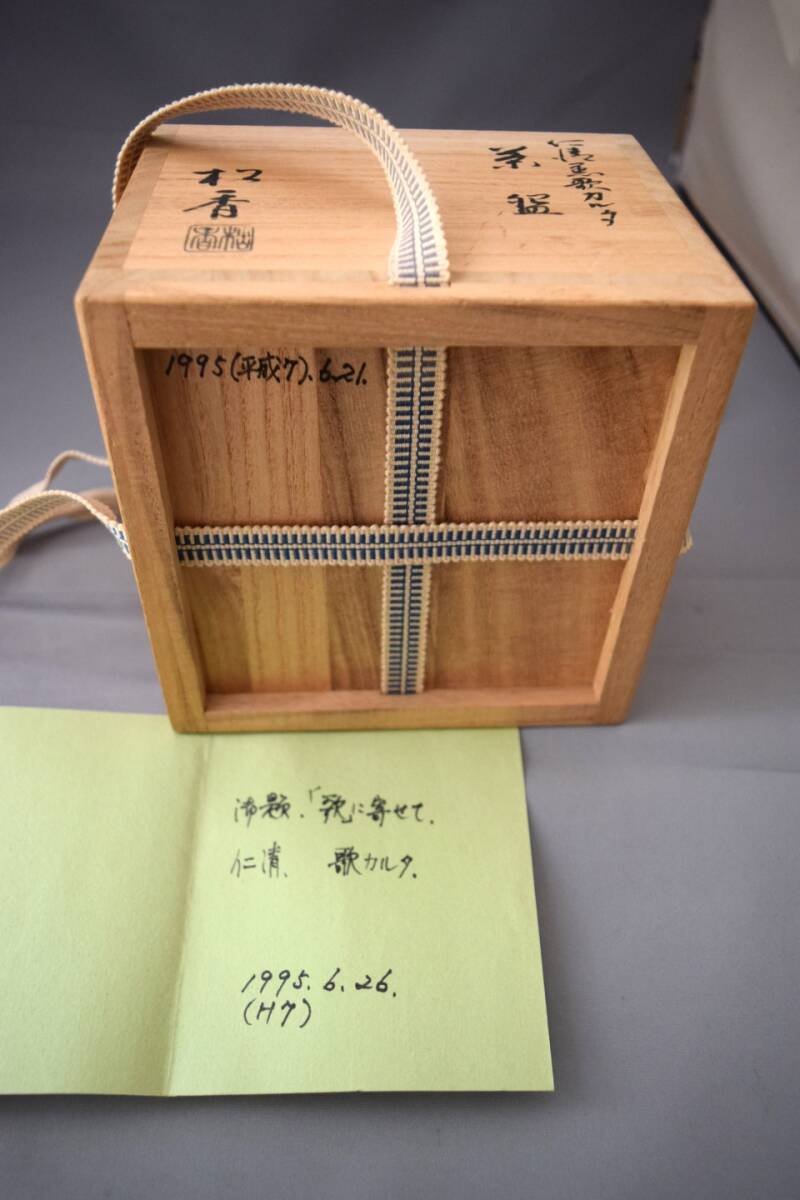 仁清 歌カルタ
茶盌
松香
松香
1995(平成7).6.21.
御題.「歌に寄せて.
仁清、 歌カルタ.
1995.6.26.
(H7)